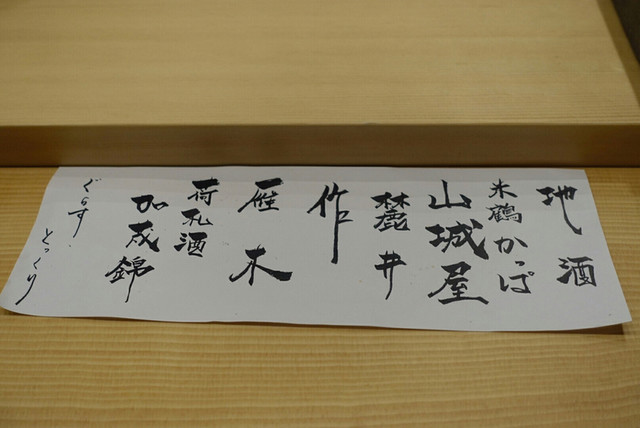 地酒
米鶴かっぱ
山城屋
麓井
作
雁木
荷札酒
加茂錦
ぐらす・とっくり